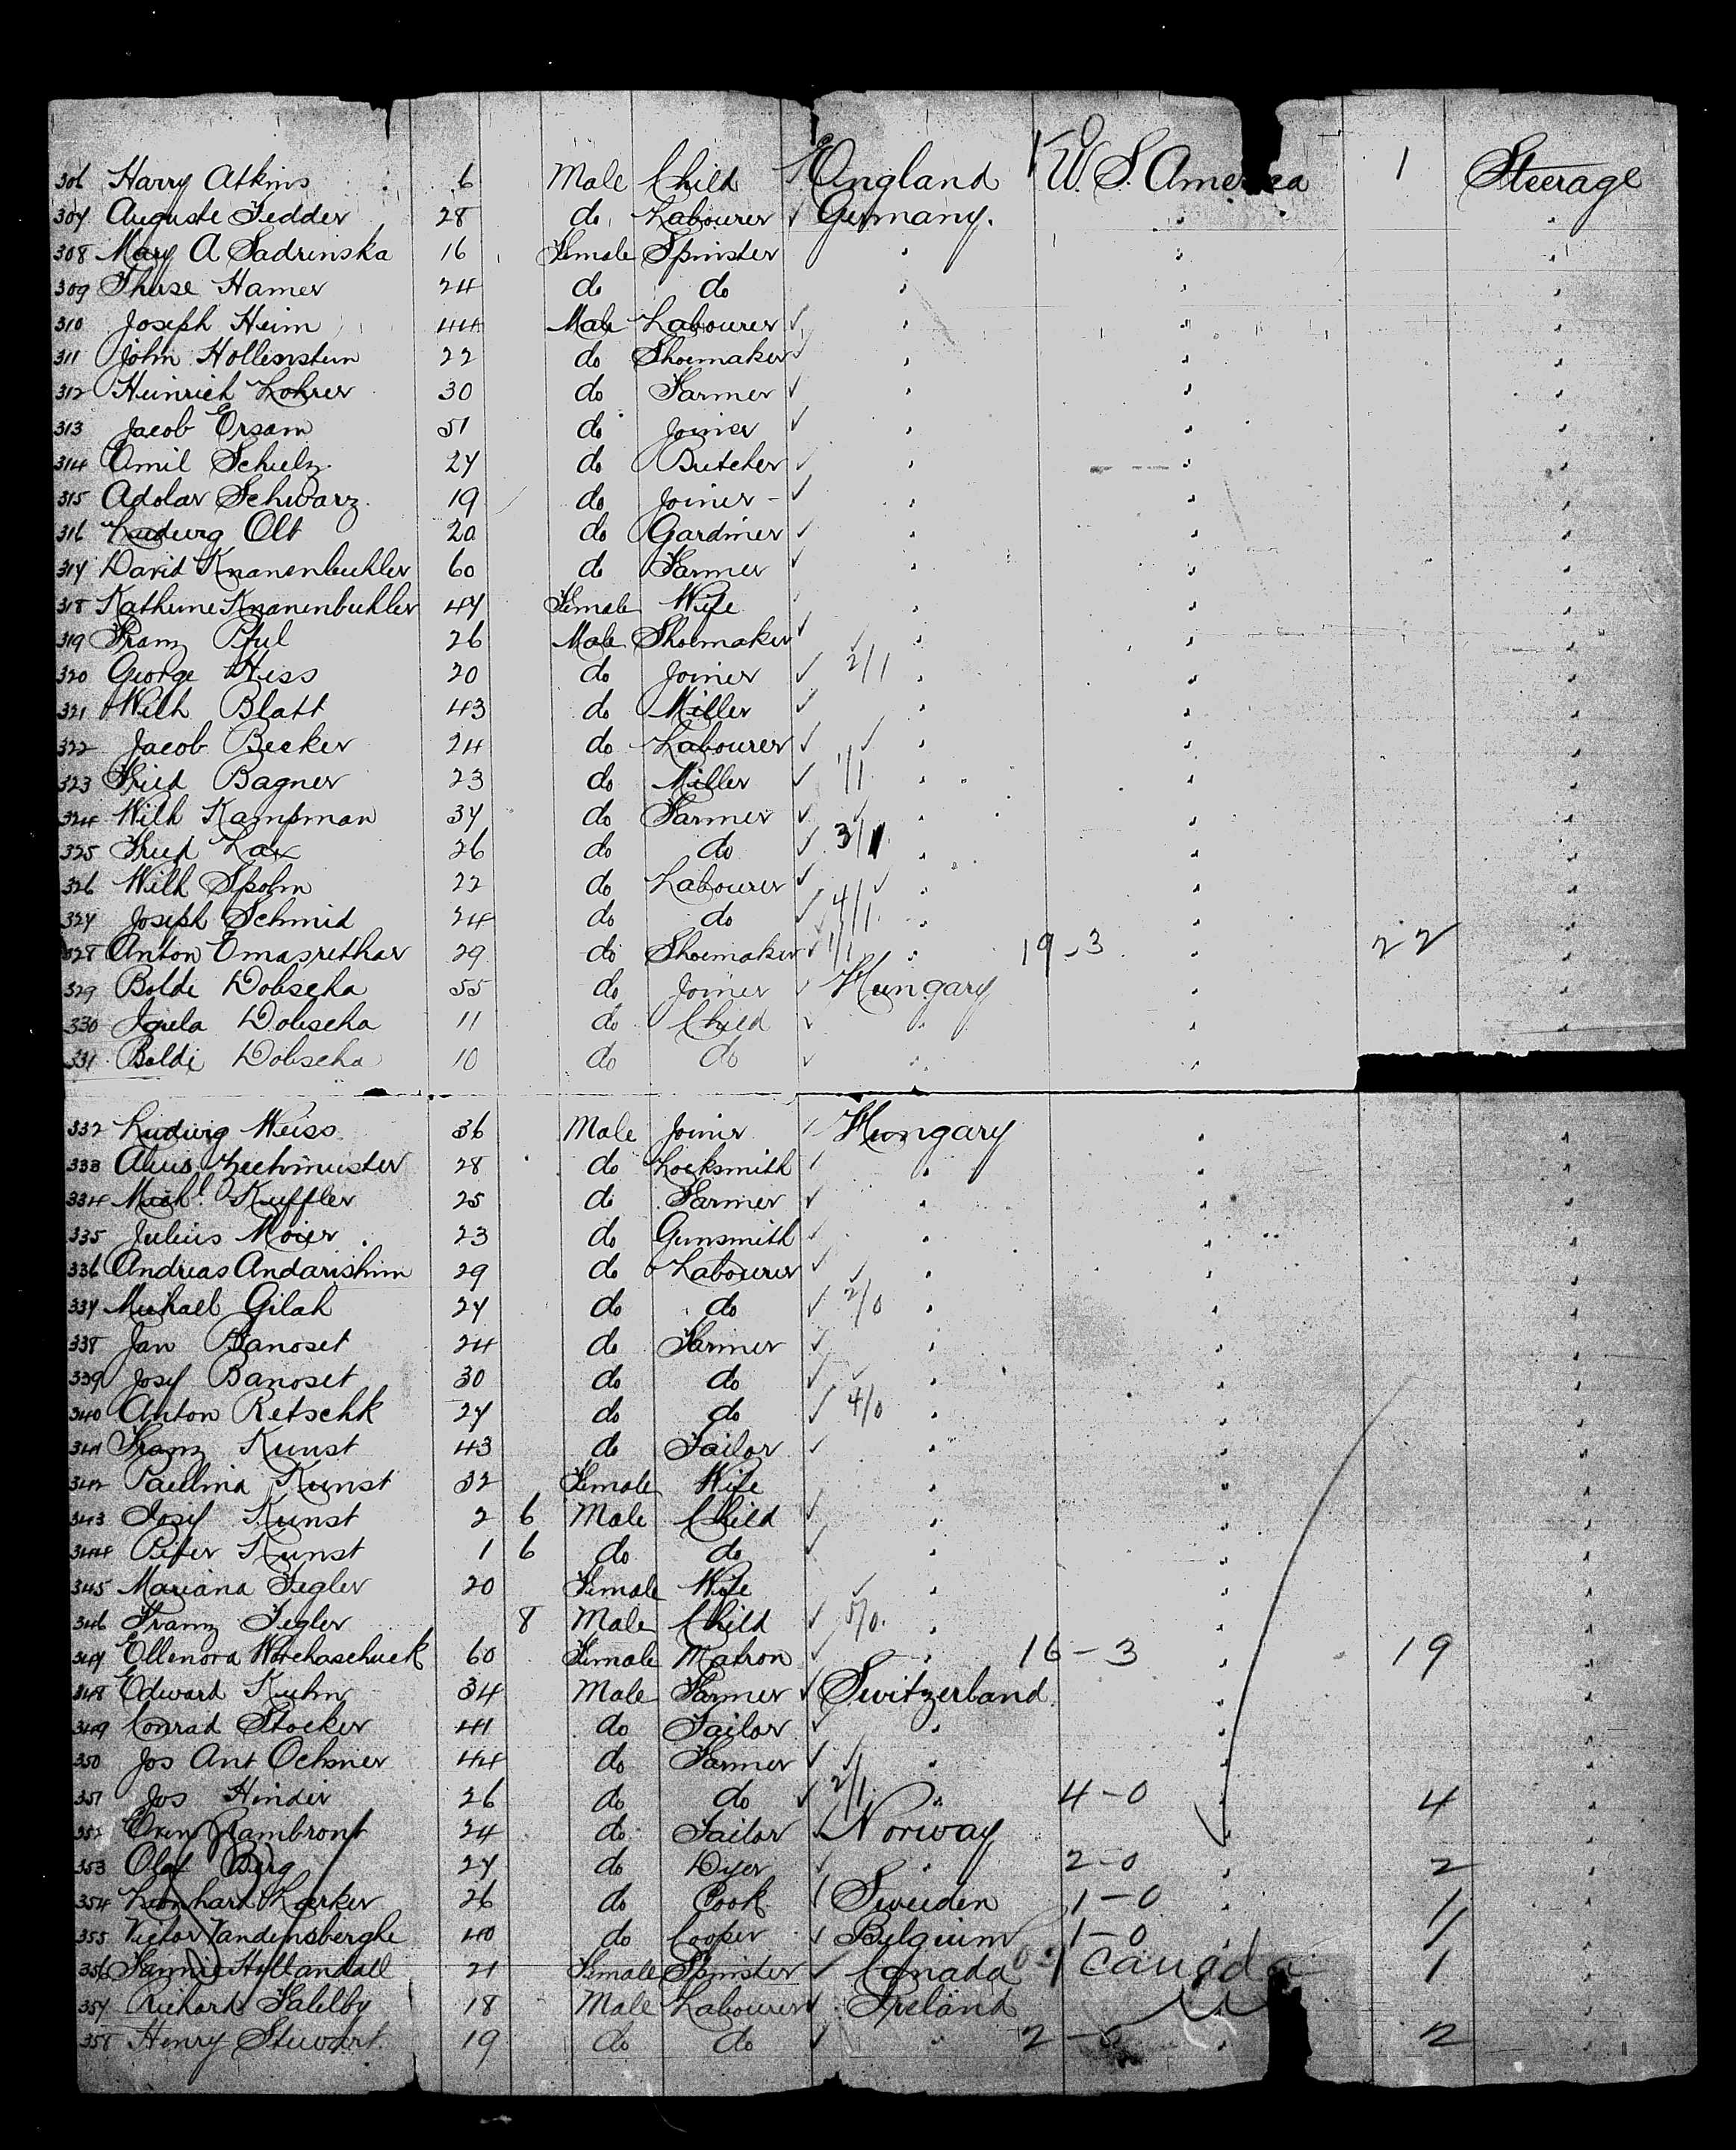 306 Harry Atkins 6 Male Child England U. S. America 1 Steerage
307 Auguste Fedder 28 do Labourer Germany.
308 Mary A Sadrinska 16 Female Spinster
309 Hamer 24 do do
310 Joseph Heim 44 Male Labourer
311 John Hollenstein 22 do Shoemaker
312 Heinrich Lohrer 30 do Farmer
313 Jacob Ersam 51 do Joiner
314 Emil Schulz 27 do Butcher
315 Adolar Schwarz 19 do Joiner
316 Ludwig Olt 20 do Gardiner
317 David Knanenbuhler 60 do Farmer
318 Katherine Knanenbuhler 47 Female Wife
319 Franz Pful 26 Male Shoemaker
320 George Hiss 20 do Joiner 2/1
321 Wilh Blatt 43 do Miller
322 Jacob Becker 24 do Labourer
323 Fried Bagner 23 do Miller 1/1
324 Wilh Kampman 37 do Farmer
325 Lax 26 do do 3/1
326 Wilh Spohn 22 do Labourer
327 Joseph Schmid 24 do do 4/1
328 Anton Emasrethar 29 do Shoemaker 1/1 19-3 22
329 Boldi Dobscha 55 do Joiner Hungary
330 Dobscha 11 do Child
331 Boldi Dobscha 10 do do
332 Ludwig Weiss 36 Male Joiner Hungary
333 Zechmeister 28 do Locksmith
334 Michl. Kuffler 25 do Farmer
335 Julius Moier 23 do Gunsmith
336 Andreas Andarishim 29 do Labourer
337 Michael Gilah 27 do do 2/0
338 Jan Banoset 24 do Farmer
339 Josef Banoset 30 do do
340 Anton Retschk 27 do do 4/0
341 Franz Kunst 43 do Tailor
342 Paulina Kunst 32 Female Wife
343 Josef Kunst 2 6 Male Child
344 Peter Kunst 1 6 do do
345 Mariana Fegler 20 Female Wife
346 Franz Fegler 8 Male Child 5/0
347 Ellenora 60 Female Matron 16-3 19
348 Edward Kuhn 34 Male Farmer Switzerland
349 Conrad Stocker 41 do Tailor
350 Jos Ant Ochsner 44 do Farmer
351 Jos Hinder 26 do do 2/1 4-0 4
352 24 do Tailor Norway
353 Olaf Berg 27 do Dyer 2-0 2
354 Leonhard 26 do Cook Sweden 1-0 1
355 Victor Vandensberghe 40 do Cooper Belgium 1-0 1
356 Fannie 21 Female Spinster Canada Canada 1
357 Richard Salelby 18 Male Labourer Ireland
358 Henry Stewart 19 do do 2 2